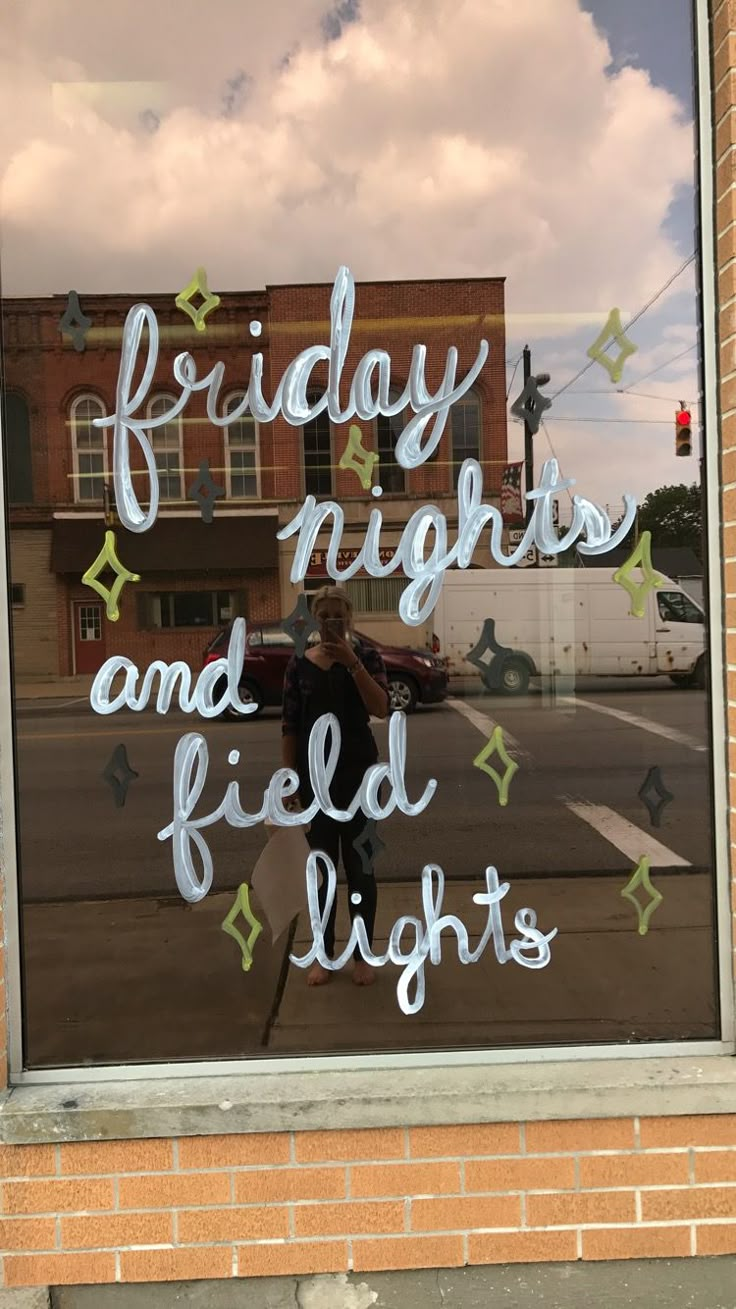 friday
nights
and
field
lights